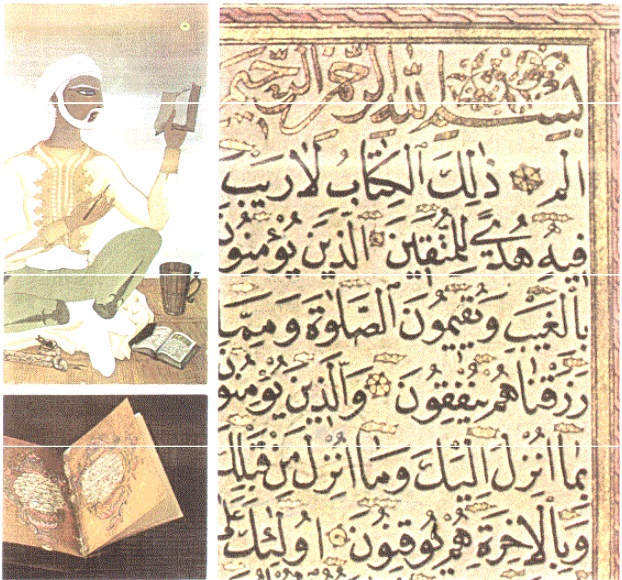 بِسْمِ اللهِ الرَّحْمٰنِ الرَّحِيمِ
الم ذٰلِكَ الْكِتَابُ لَا رَيْبَ
فِيهِ هُدًى لِلْمُتَّقِينَ الَّذِينَ يُؤْمِنُونَ
بِالْغَيْبِ وَيُقِيمُونَ الصَّلٰوةَ وَمِمَّا
رَزَقْنَاهُمْ يُنْفِقُونَ وَالَّذِينَ يُؤْمِنُونَ
بِمَا اُنْزِلَ اِلَيْكَ وَمَا اُنْزِلَ مِنْ قَبْلِكَ
وَبِالْاٰخِرَةِ هُمْ يُوقِنُونَ اُولٰئِكَ عَلَى